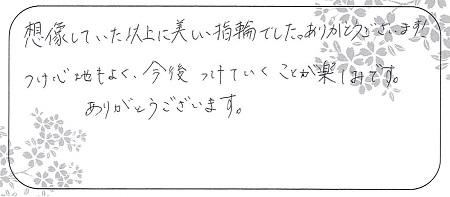 想像していた以上に美しい指輪でした。ありがとうございます!
つけ心地もよく、今後つけていくことが楽しみです。
ありがとうございます。